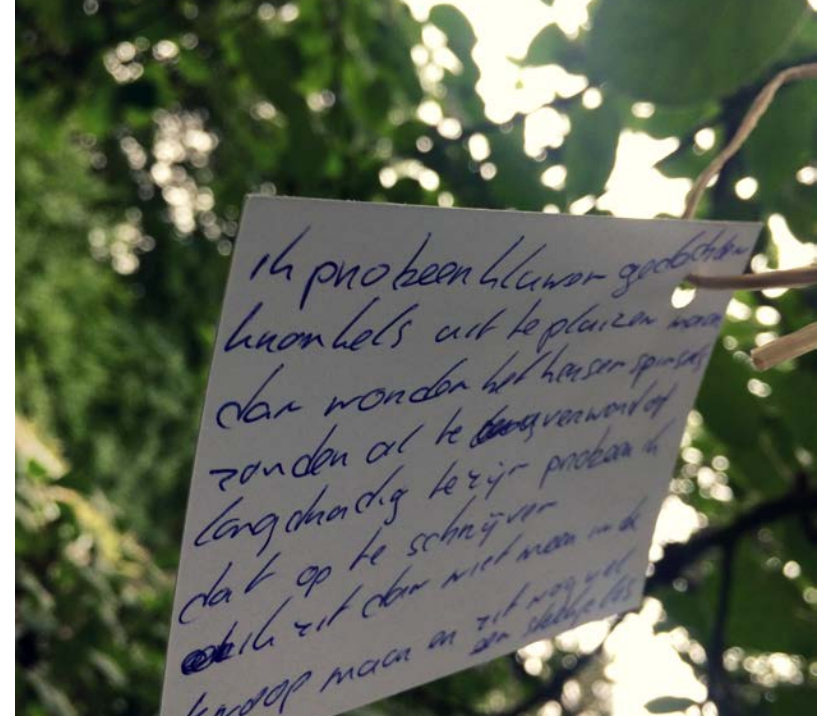 ik probeer kluwen gedachten
kronkels uit te pluizen maar
dan worden het hersenspinsels
zonder al te verward of
langdradig te zijn probeer ik
dat op te schrijven
ik zit dan niet meer in de
knoop maar er zit nog wel
een steekje los